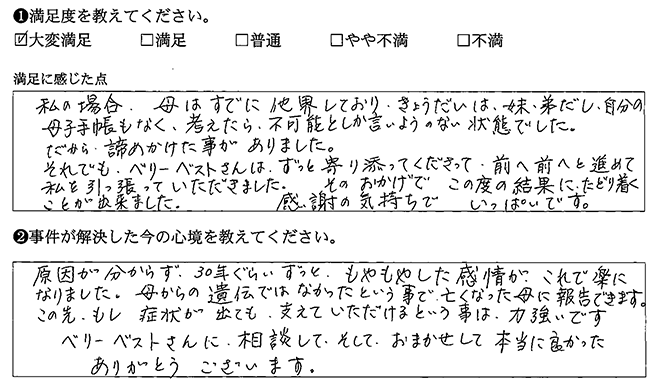 ❶満足度を教えてください。
☑大変満足 □満足 □普通 □やや不満 □不満
満足に感じた点
私の場合、母はすでに他界しており、きょうだいは、妹、弟だし、自分の
母子手帳もなく、考えたら、不可能としか言いようのない状態でした。
だから、諦めかけた事がありました。
それでも、ベリーベストさんは、ずっと寄り添ってくださって、前へ前へと進めて
私を引っ張っていただきました。 そのおかげで この度の結果に、たどり着く
ことが出来ました。 感謝の気持ちで いっぱいです。
❷事件が解決した今の心境を教えてください。
原因が分からず、30年ぐらいずっと、もやもやした感情が、これで楽に
なりました。母からの遺伝ではなかったという事で、亡くなった母に報告できます。
この先、もし 症状が出ても、支えていただけるという事は、力強いです
ベリーベストさんに、相談して、そして、おまかせして本当に良かった
ありがとう ございます。